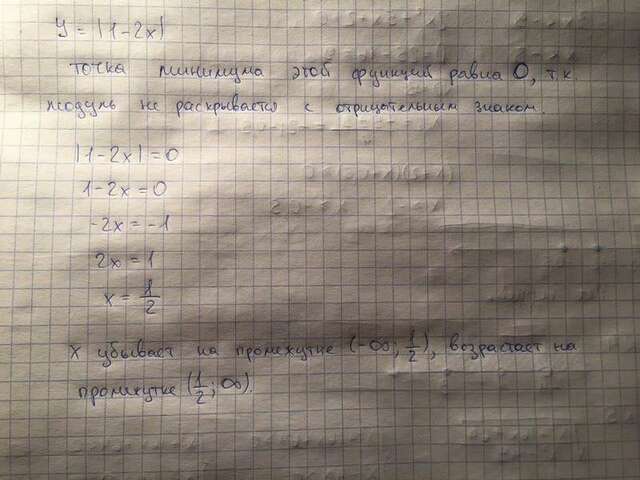 y = |1-2x|
точка минимума этой функции равна 0, т.к.
модуль не раскрывается с отрицательным знаком.
|1-2x|=0
1-2x=0
-2x=-1
2x=1
x=1/2
x убывает на промежутке (-∞; 1/2), возрастает на
промежутке (1/2; ∞).